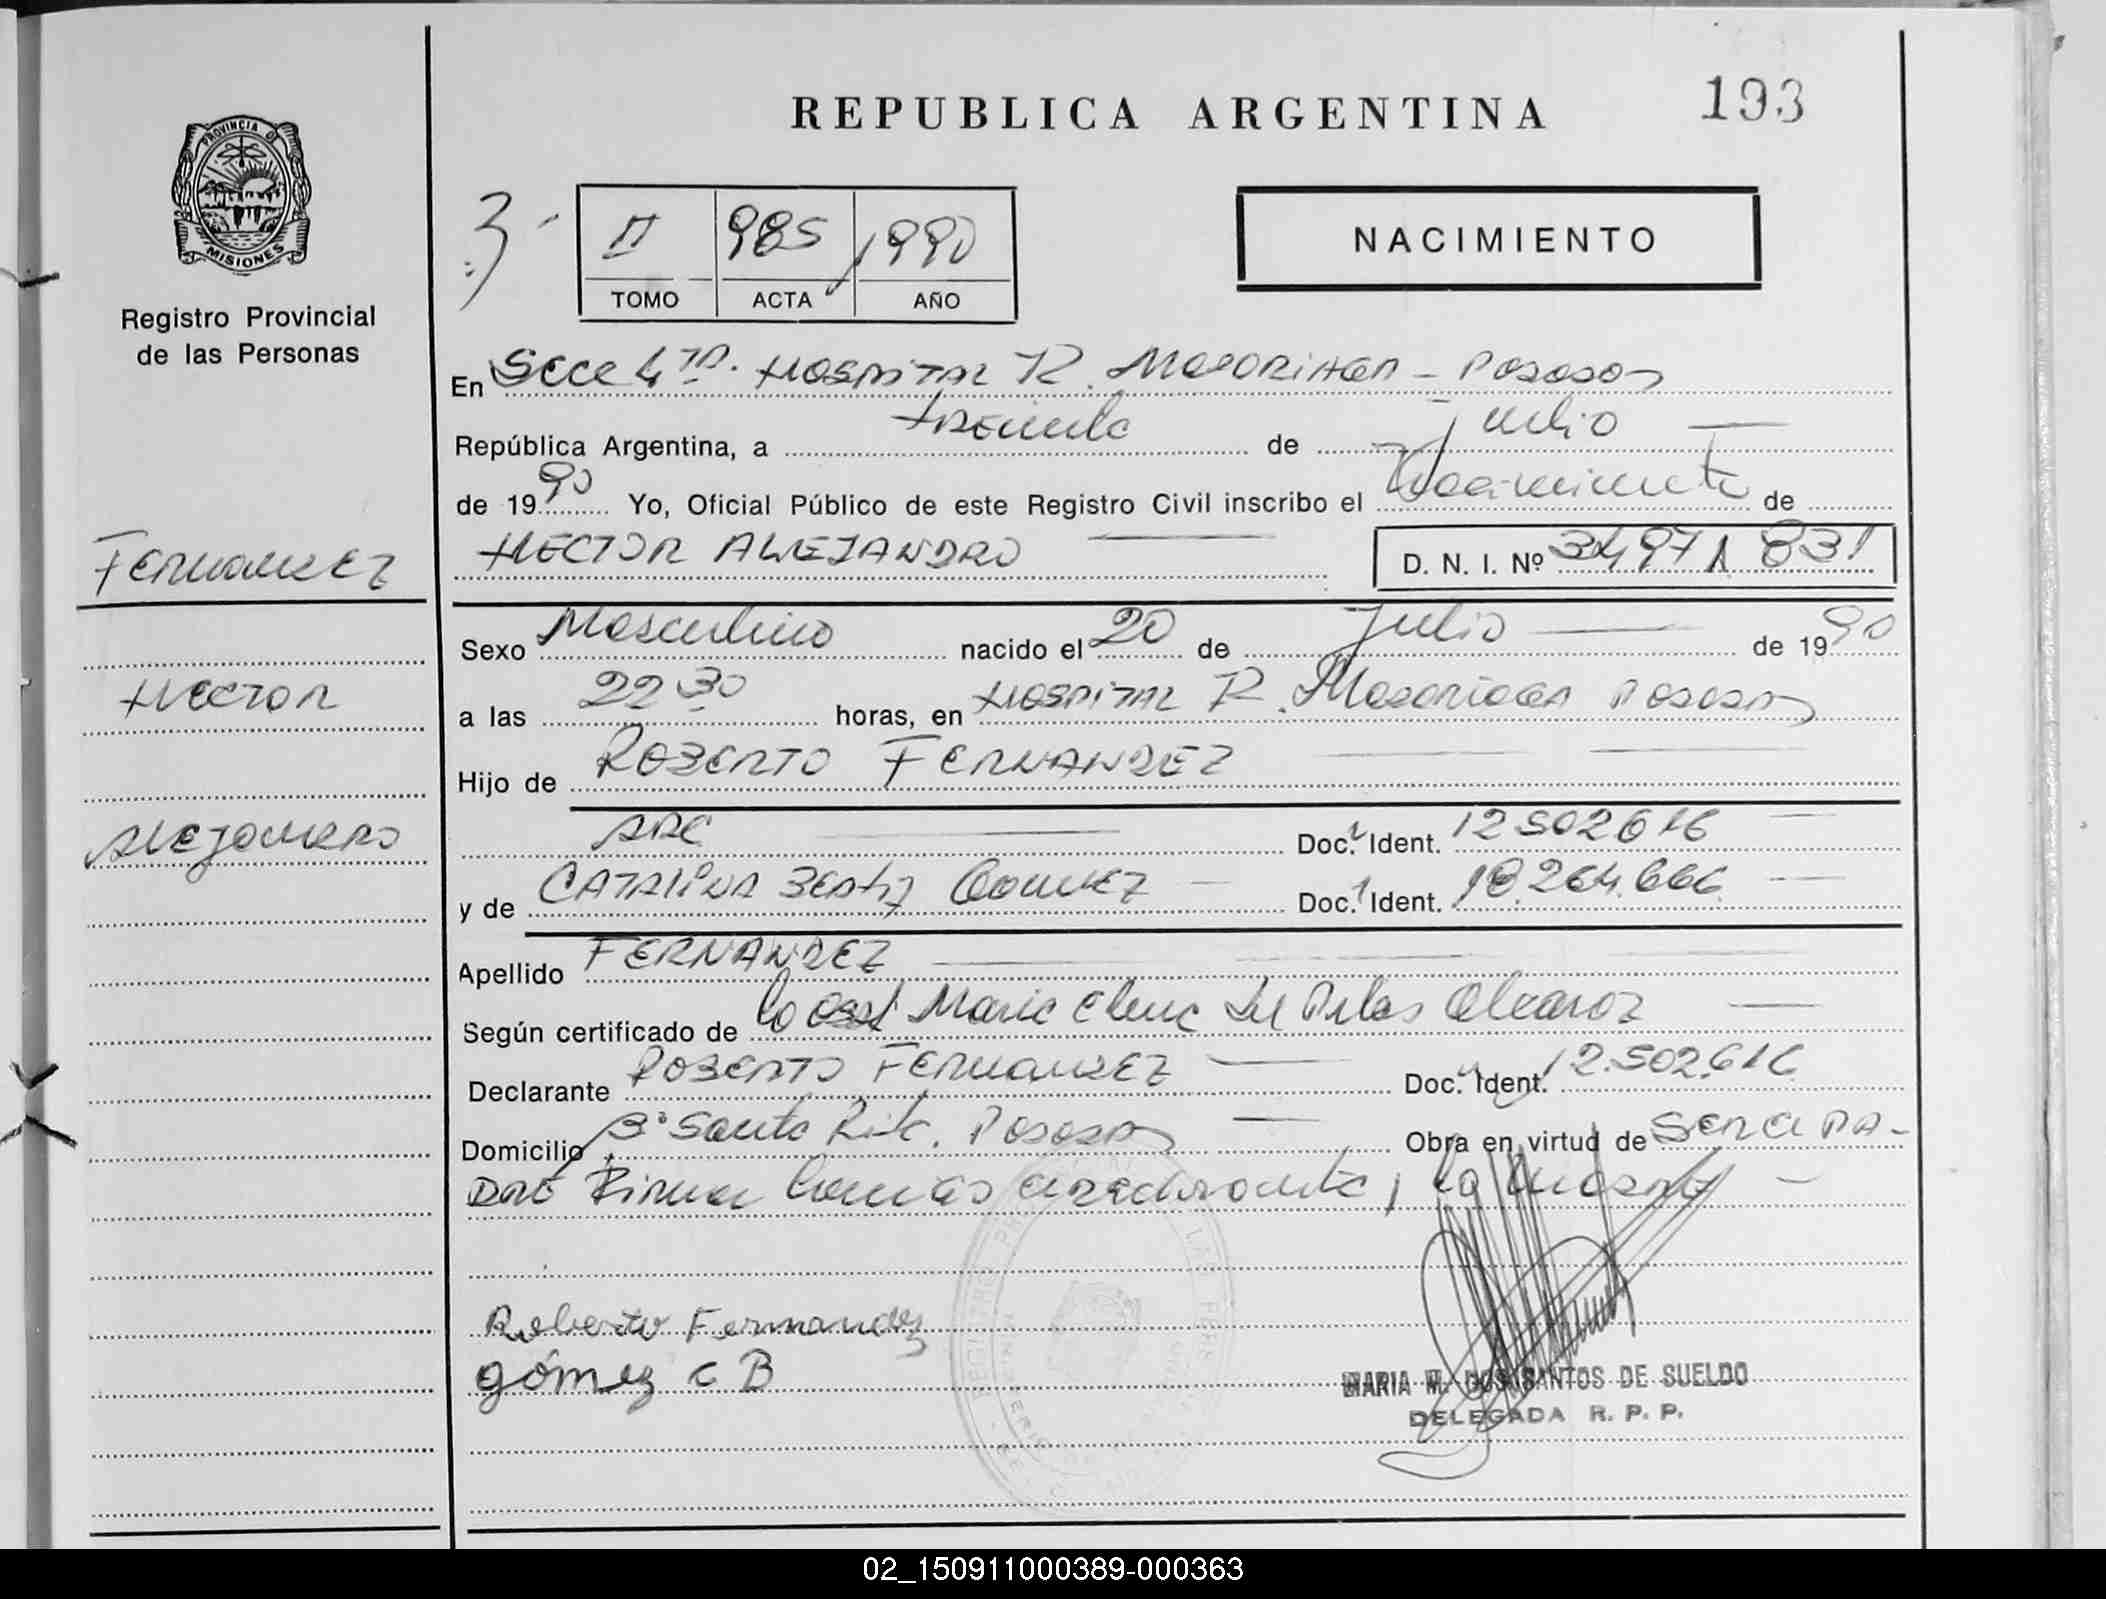 REPUBLICA ARGENTINA
193
PROVINCIA DE
MISIONES
Registro Provincial
de las Personas
3
II 985 1990
TOMO ACTA AÑO
NACIMIENTO
En Secc 4ta. Hospital R. Madariaga - Posadas
República Argentina, a treinta de Julio
de 1990 Yo, Oficial Público de este Registro Civil inscribo el Nacimiento de
HECTOR ALEJANDRO D. N. I. Nº 34971831
FERNANDEZ
Sexo Masculino nacido el 20 de Julio de 1990
HECTOR
a las 22 30 horas, en Hospital R. Madariaga Posadas
Hijo de ROBERTO FERNANDEZ
ALEJANDRO
ARG Doc. Ident. 12502616
y de CATALINA Beatriz Gomez Doc. Ident. 18.264.666
Apellido FERNANDEZ
Según certificado de la Obst Maria Elena Del Alcaraz
Declarante ROBERTO FERNANDEZ Doc. Ident. 12.502.616
Domicilio Bº Santa Rita. Posadas Obra en virtud de SER el PA-
DRE Firma la madre
Roberto Fernandez
gómez C B
MARIA M. DOS SANTOS DE SUELDO
DELEGADA R. P. P.
02_150911000389-000363